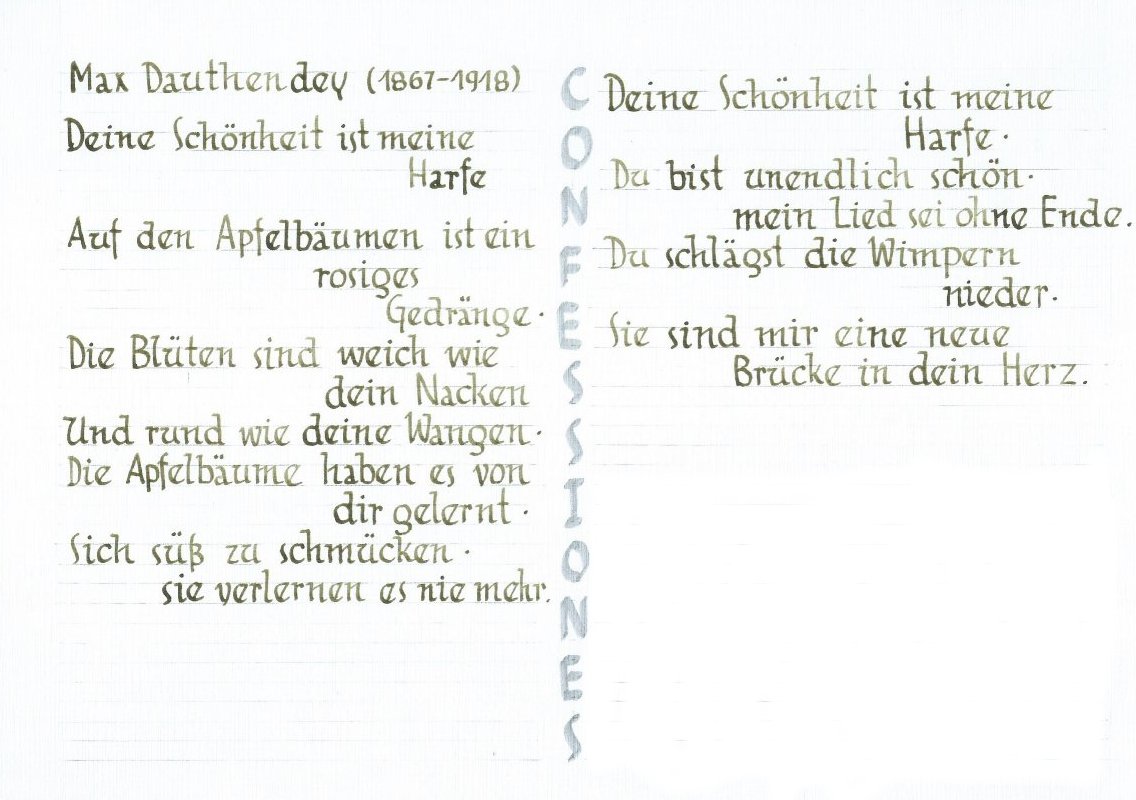 Max Dauthendey (1867-1918)
Deine Schönheit ist meine
Harfe
Auf den Apfelbäumen ist ein
rosiges
Gedränge·
Die Blüten sind weich wie
dein Nacken
Und rund wie deine Wangen·
Die Apfelbäume haben es von
dir gelernt·
Sich süß zu schmücken·
sie verlernen es nie mehr.
CONFESSIONES
Deine Schönheit ist meine
Harfe·
Du bist unendlich schön·
mein Lied sei ohne Ende.
Du schlägst die Wimpern
nieder·
Sie sind mir eine neue
Brücke in dein Herz.